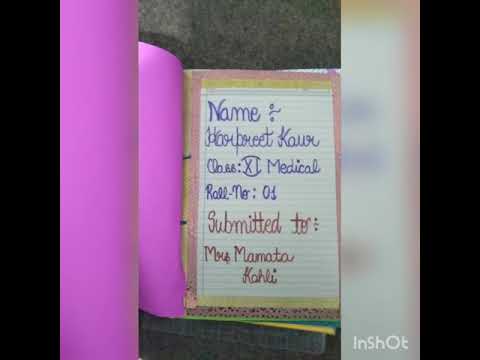 Name :-
Harpreet Kaur
Class: XI Medical
Roll-No : 01
Submitted to :-
Mrs Mamata
Kohli
InShOt